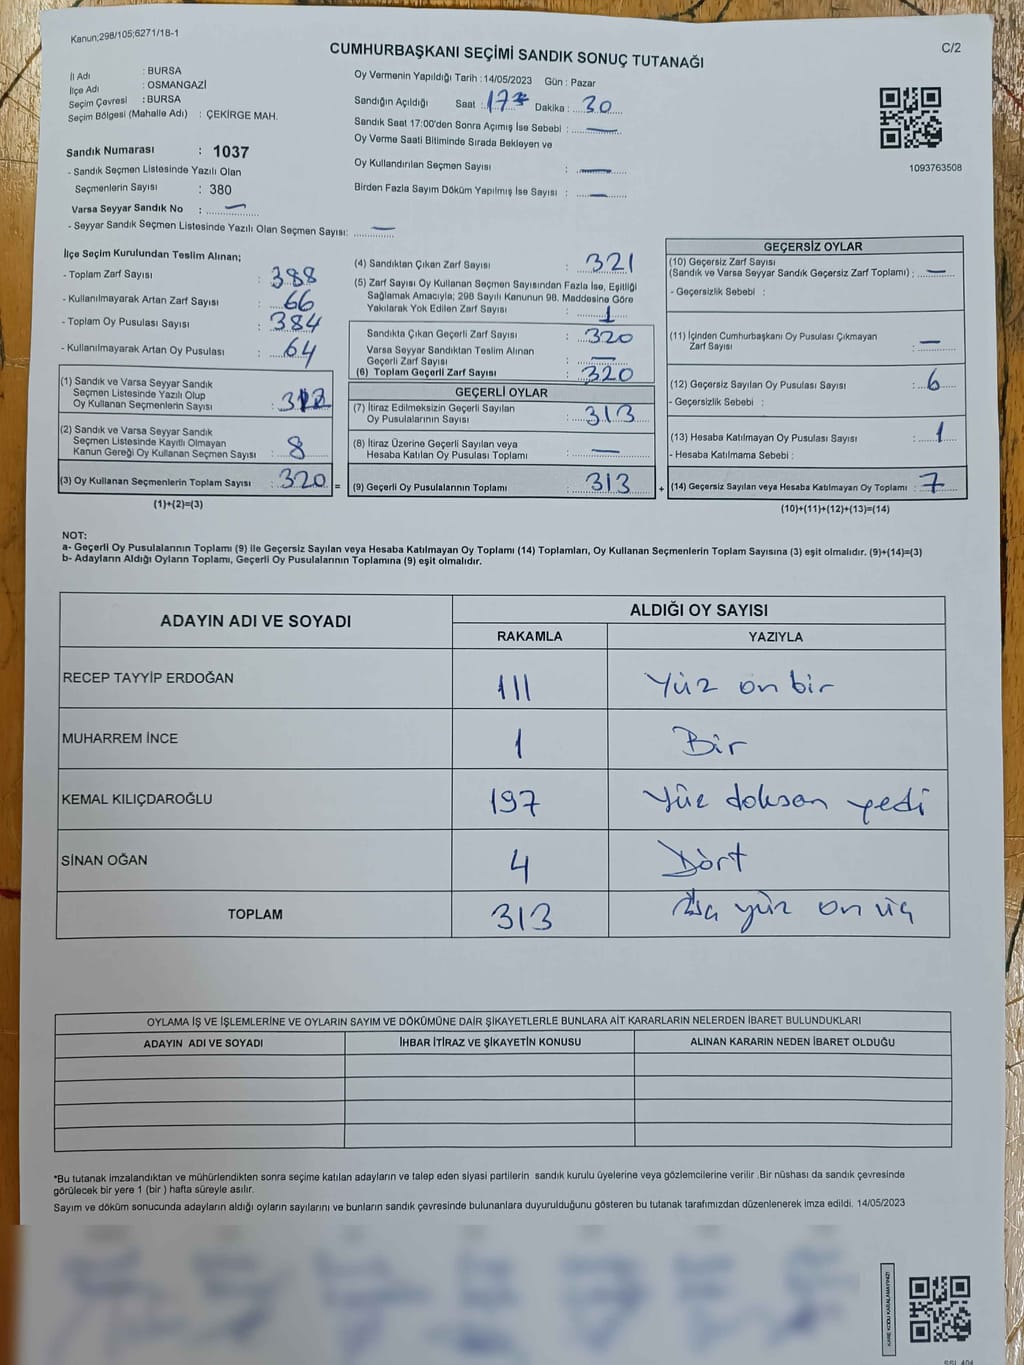 Kanun;298/105;6271/18-1
C/2
CUMHURBAŞKANI SEÇİMİ SANDIK SONUÇ TUTANAĞI
İl Adı : BURSA
İlçe Adı : OSMANGAZİ
Seçim Çevresi : BURSA
Seçim Bölgesi (Mahalle Adı) : ÇEKİRGE MAH.
Sandık Numarası : 1037
- Sandık Seçmen Listesinde Yazılı Olan
Seçmenlerin Sayısı : 380
Varsa Seyyar Sandık No : —
- Seyyar Sandık Seçmen Listesinde Yazılı Olan Seçmen Sayısı: —
Oy Vermenin Yapıldığı Tarih :14/05/2023 Gün : Pazar
Sandığın Açıldığı Saat : 17 Dakika : 30
Sandık Saat 17:00'den Sonra Açımış İse Sebebi : —
Oy Verme Saati Bitiminde Sırada Bekleyen ve
Oy Kullandırılan Seçmen Sayısı : —
Birden Fazla Sayım Döküm Yapılmış İse Sayısı : —
1093763508
İlçe Seçim Kurulundan Teslim Alınan;
- Toplam Zarf Sayısı : 388
- Kullanılmayarak Artan Zarf Sayısı : 66
- Toplam Oy Pusulası Sayısı : 384
- Kullanılmayarak Artan Oy Pusulası : 64
(1) Sandık ve Varsa Seyyar Sandık
Seçmen Listesinde Yazılı Olup
Oy Kullanan Seçmenlerin Sayısı : 312
(2) Sandık ve Varsa Seyyar Sandık
Seçmen Listesinde Kayıtlı Olmayan
Kanun Gereği Oy Kullanan Seçmen Sayısı : 8
(3) Oy Kullanan Seçmenlerin Toplam Sayısı : 320 =
(1)+(2)=(3)
(4) Sandıktan Çıkan Zarf Sayısı : 321
(5) Zarf Sayısı Oy Kullanan Seçmen Sayısından Fazla İse, Eşitliği
Sağlamak Amacıyla; 298 Sayılı Kanunun 98. Maddesine Göre
Yakılarak Yok Edilen Zarf Sayısı : 1
Sandıkta Çıkan Geçerli Zarf Sayısı : 320
Varsa Seyyar Sandıktan Teslim Alınan
Geçerli Zarf Sayısı : —
(6) Toplam Geçerli Zarf Sayısı : 320
GEÇERLİ OYLAR
(7) İtiraz Edilmeksizin Geçerli Sayılan
Oy Pusulalarının Sayısı : 313
(8) İtiraz Üzerine Geçerli Sayılan veya
Hesaba Katılan Oy Pusulası Toplamı : —
(9) Geçerli Oy Pusulalarının Toplamı : 313 +
GEÇERSİZ OYLAR
(10) Geçersiz Zarf Sayısı
(Sandık ve Varsa Seyyar Sandık Geçersiz Zarf Toplamı) : —
- Geçersizlik Sebebi :
(11) İçinden Cumhurbaşkanı Oy Pusulası Çıkmayan
Zarf Sayısı : —
(12) Geçersiz Sayılan Oy Pusulası Sayısı : 6
- Geçersizlik Sebebi :
(13) Hesaba Katılmayan Oy Pusulası Sayısı : 1
- Hesaba Katılmama Sebebi :
(14) Geçersiz Sayılan veya Hesaba Katılmayan Oy Toplamı : 7
(10)+(11)+(12)+(13)=(14)
NOT:
a- Geçerli Oy Pusulalarının Toplamı (9) ile Geçersiz Sayılan veya Hesaba Katılmayan Oy Toplamı (14) Toplamları, Oy Kullanan Seçmenlerin Toplam Sayısına (3) eşit olmalıdır. (9)+(14)=(3)
b- Adayların Aldığı Oyların Toplamı, Geçerli Oy Pusulalarının Toplamına (9) eşit olmalıdır.
ADAYIN ADI VE SOYADI
ALDIĞI OY SAYISI
RAKAMLA YAZIYLA
RECEP TAYYİP ERDOĞAN 111 Yüz on bir
MUHARREM İNCE 1 Bir
KEMAL KILIÇDAROĞLU 197 Yüz doksan yedi
SİNAN OĞAN 4 Dört
TOPLAM 313 Üç yüz on üç
OYLAMA İŞ VE İŞLEMLERİNE VE OYLARIN SAYIM VE DÖKÜMÜNE DAİR ŞİKAYETLERLE BUNLARA AİT KARARLARIN NELERDEN İBARET BULUNDUKLARI
ADAYIN ADI VE SOYADI İHBAR İTİRAZ VE ŞİKAYETİN KONUSU ALINAN KARARIN NEDEN İBARET OLDUĞU
*Bu tutanak imzalandıktan ve mühürlendikten sonra seçime katılan adayların ve talep eden siyasi partilerin sandık kurulu üyelerine veya gözlemcilerine verilir .Bir nüshası da sandık çevresinde
görülecek bir yere 1 (bir ) hafta süreyle asılır.
Sayım ve döküm sonucunda adayların aldığı oyların sayılarını ve bunların sandık çevresinde bulunanlara duyurulduğunu gösteren bu tutanak tarafımızdan düzenlenerek imza edildi. 14/05/2023